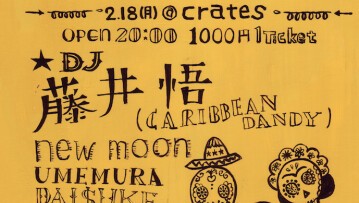 2.18(月)@crates
OPEN 20:00 1000円 1Ticket
★DJ
藤井悟
(CARIBBEAN DANDY)
new moon
UMEMURA
DAISUKE